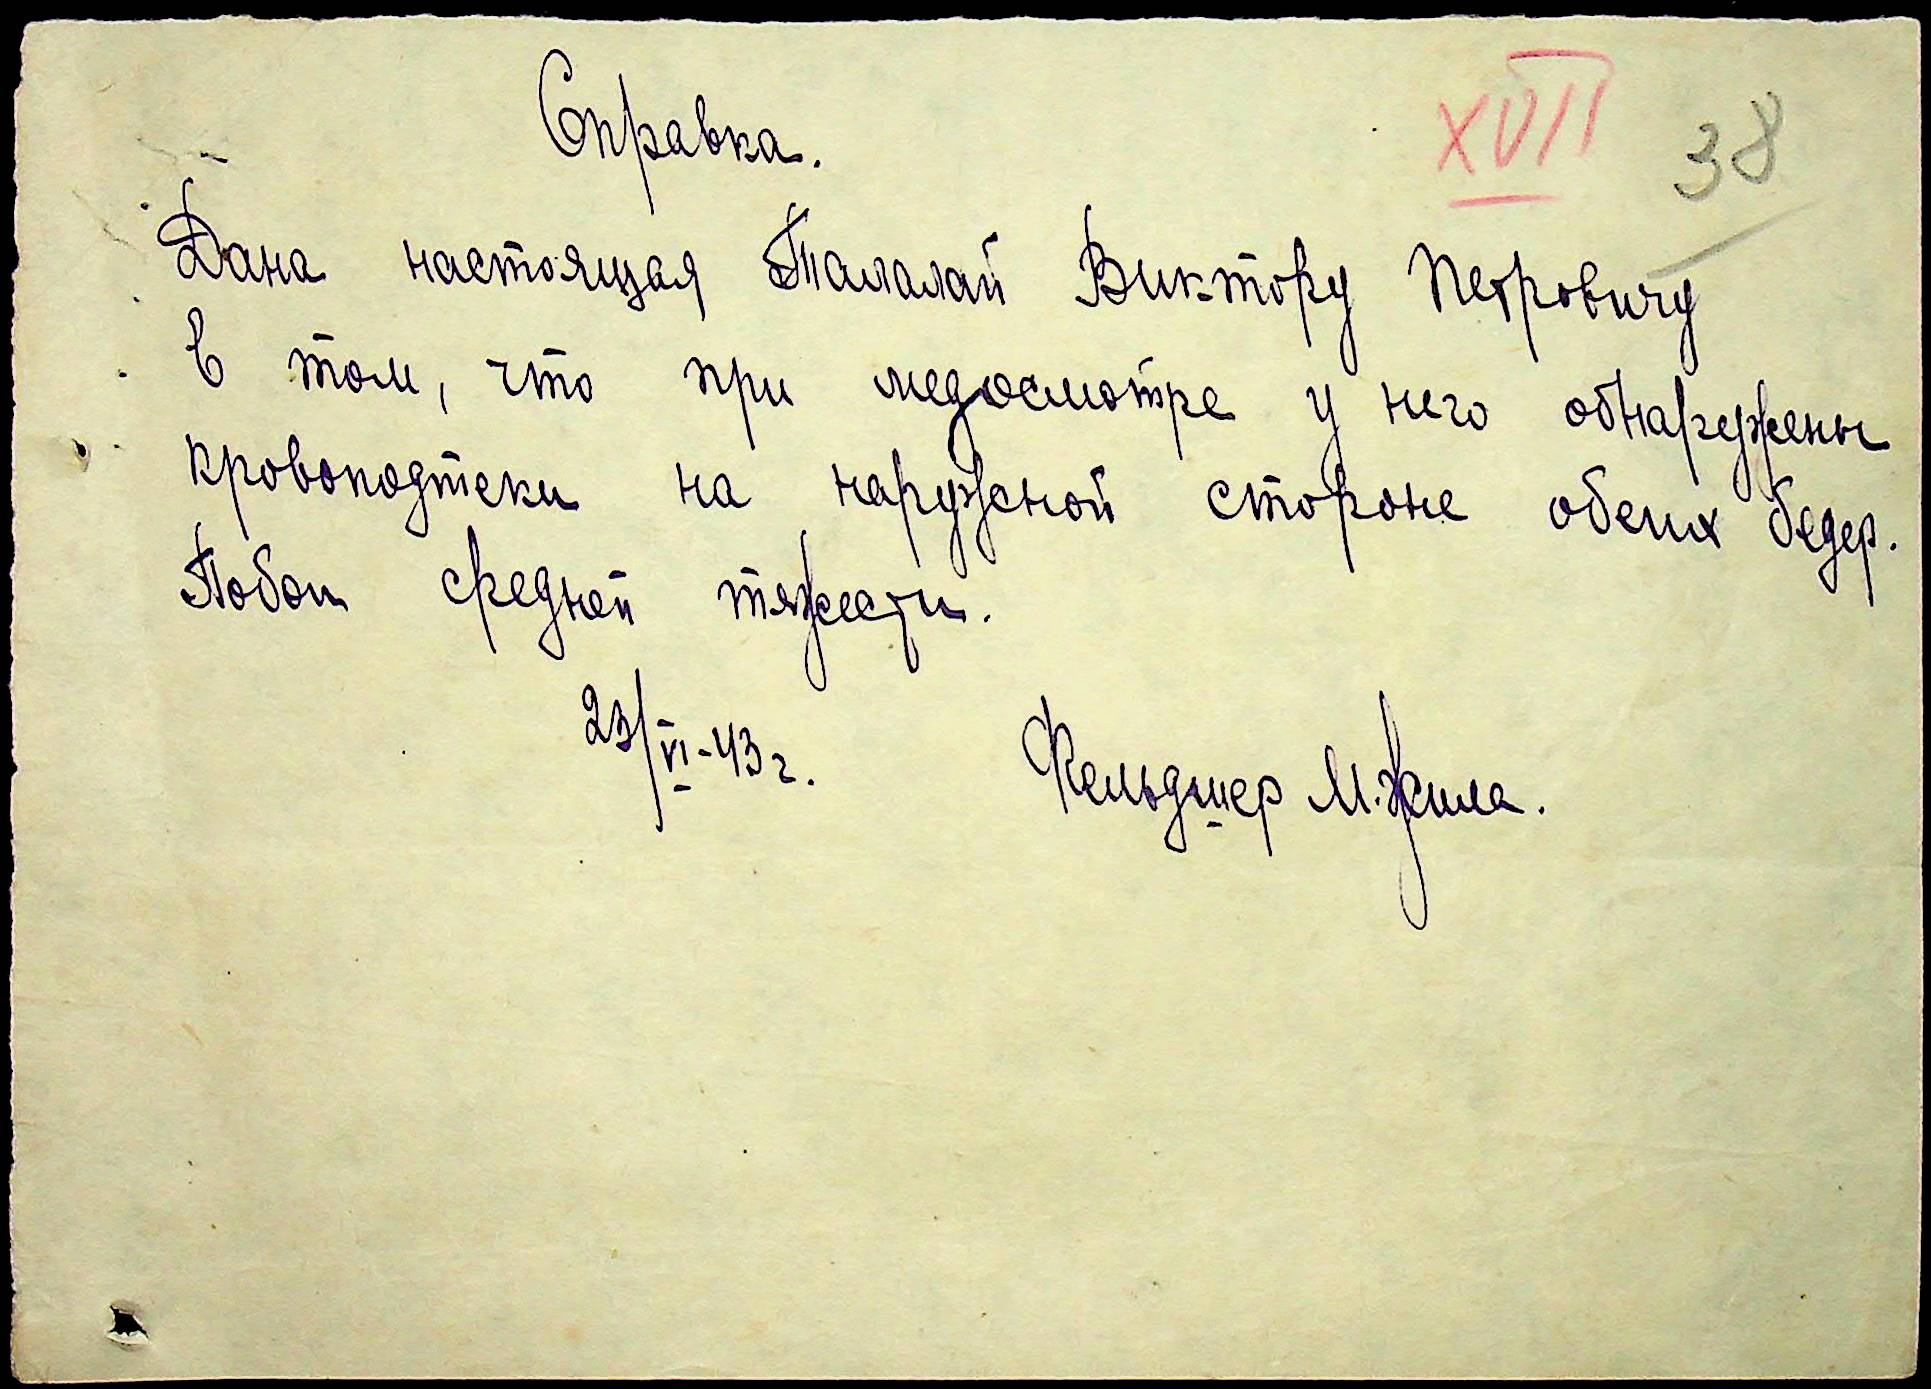 Справка.
XVII
38
Дана настоящая Талалай Виктору Петровичу
в том, что при медосмотре у него обнаружены
кровоподтеки на наружной стороне обеих бедер.
Побои средней тяжести.
23/VI-43 г.
Фельдшер М. Жила.